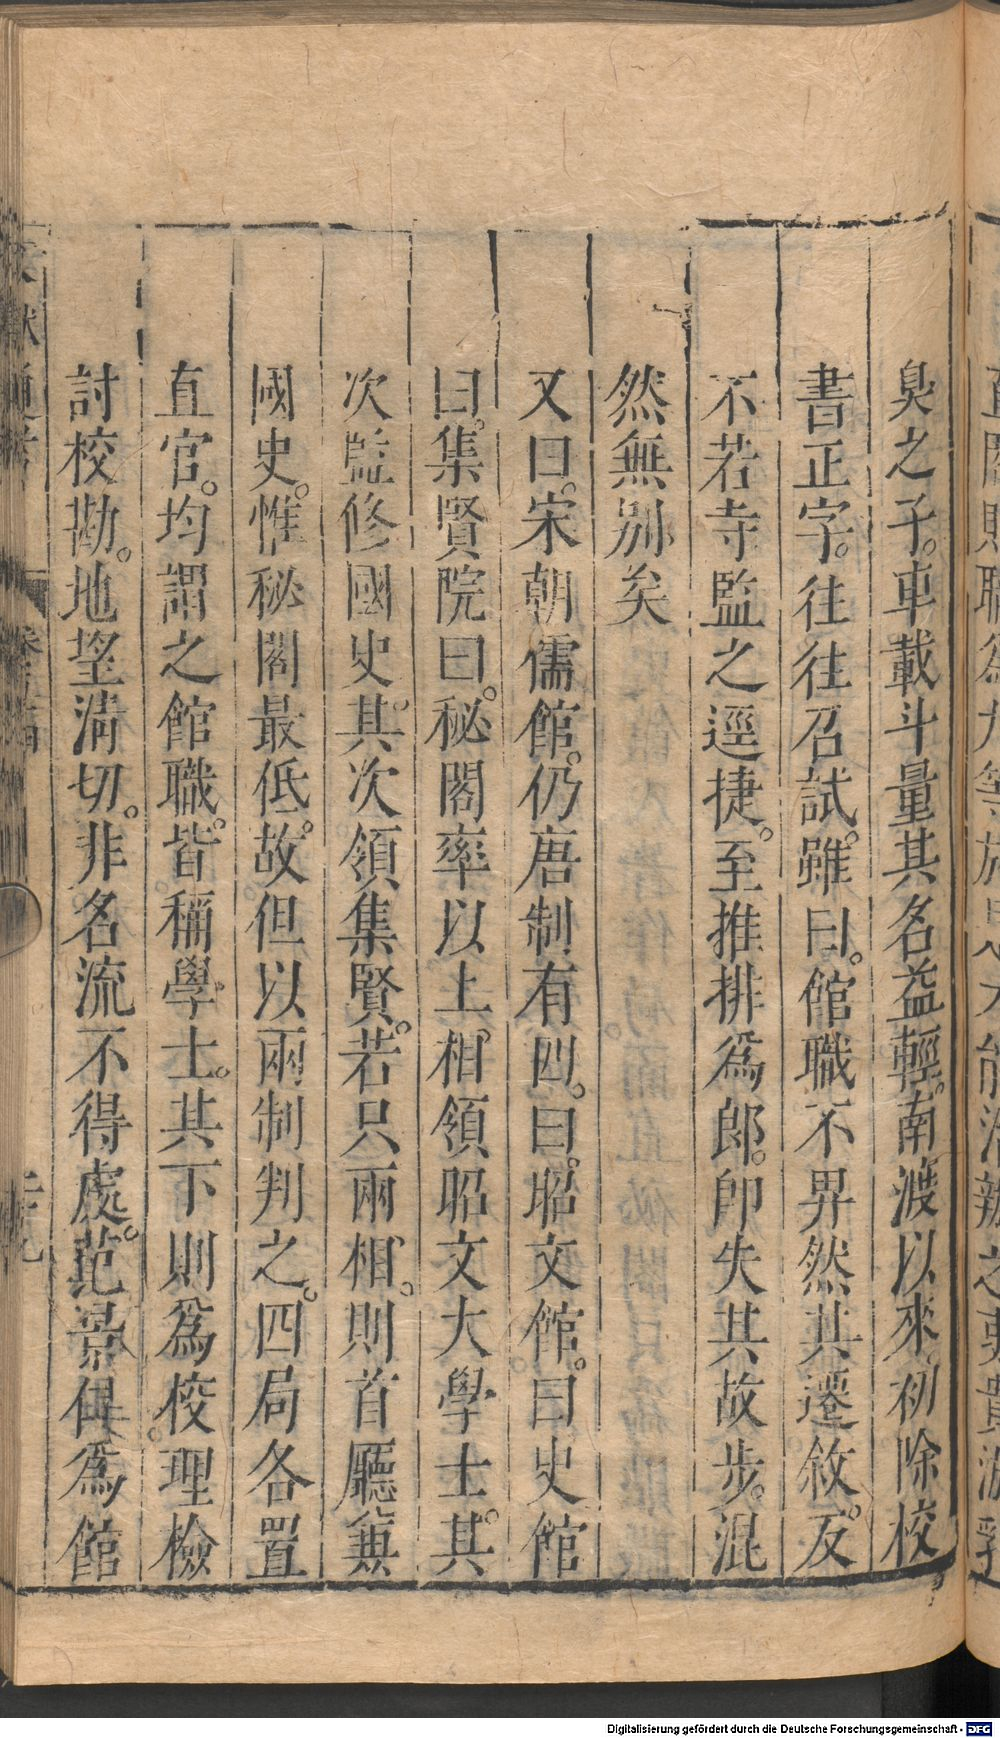 臭之子。車載斗量其名益輕。南渡以來初除校
書正字。往往召試。雖曰。館職不畀然其遷敘。反
不若寺監之逕捷。至推排爲郎。卽失其故步。混
然無别矣
又曰。宋朝儒館。仍唐制有四。曰。昭文館。曰史館
曰。集賢院曰。秘閣率以上相。領昭文大學士。其
次監修國史。其次領集賢。若只兩相。則首廳兼
國史。惟秘閣最低。故但以兩制判之。四局各置
直官。均謂之館職。皆稱學士。其下則爲校理檢
討校勘。地望清切。非名流不得處。范景仁爲館
Digitalisierung gefördert durch die Deutsche Forschungsgemeinschaft - DFG